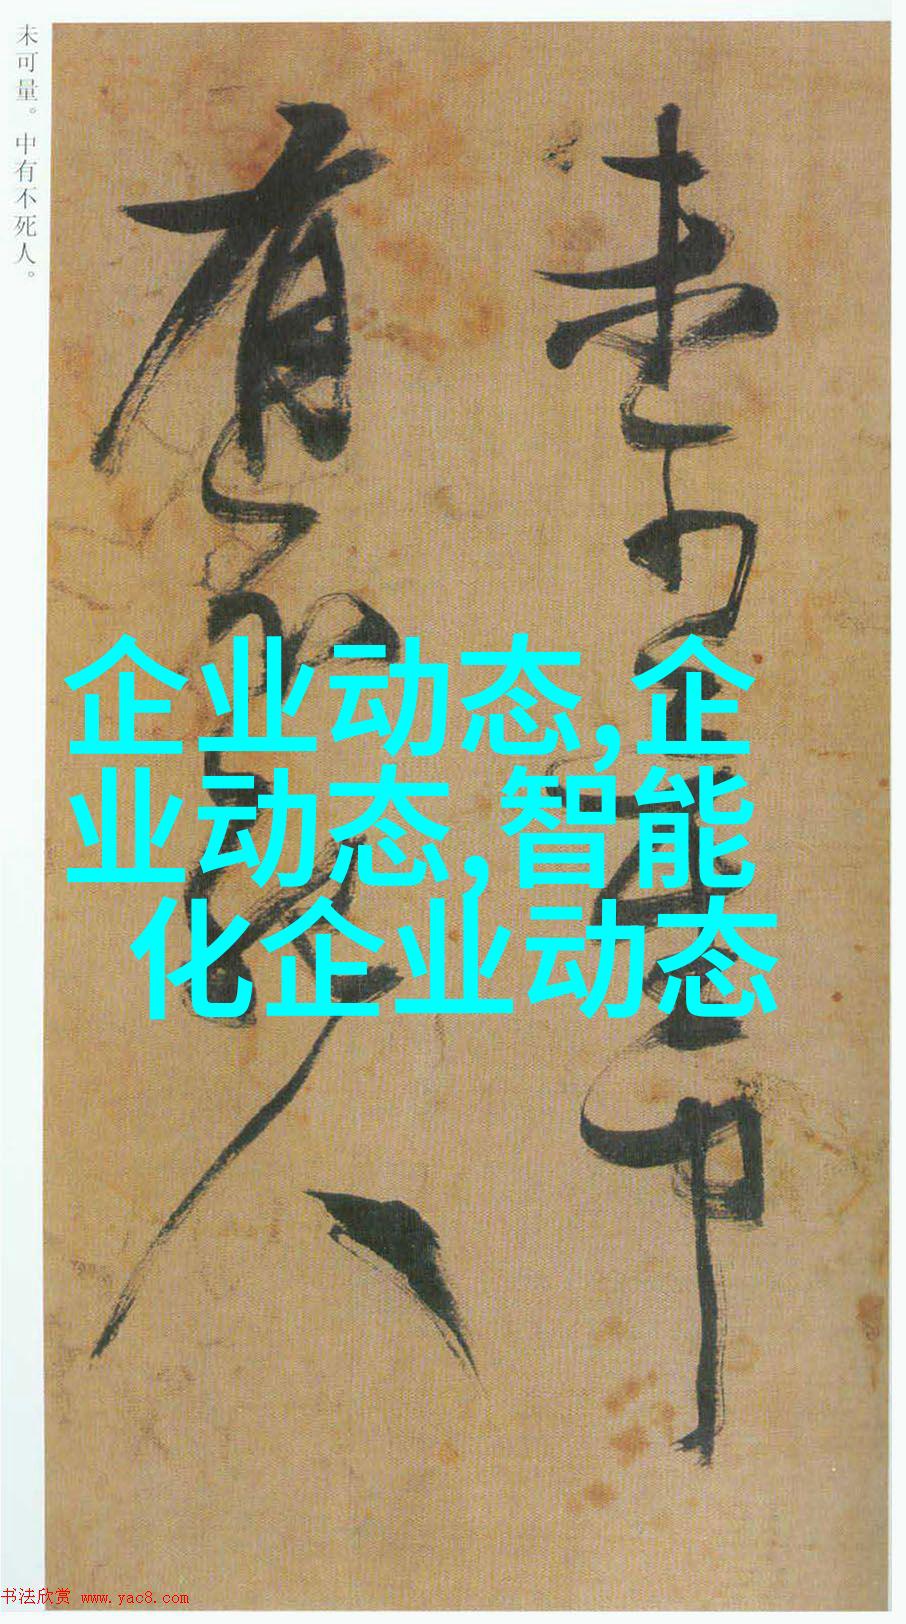 未可量。中有不死人。
未可量中
有不死人
企业动态,企
业动态,智能
化企业动态
书法欣赏 www.yac8.com